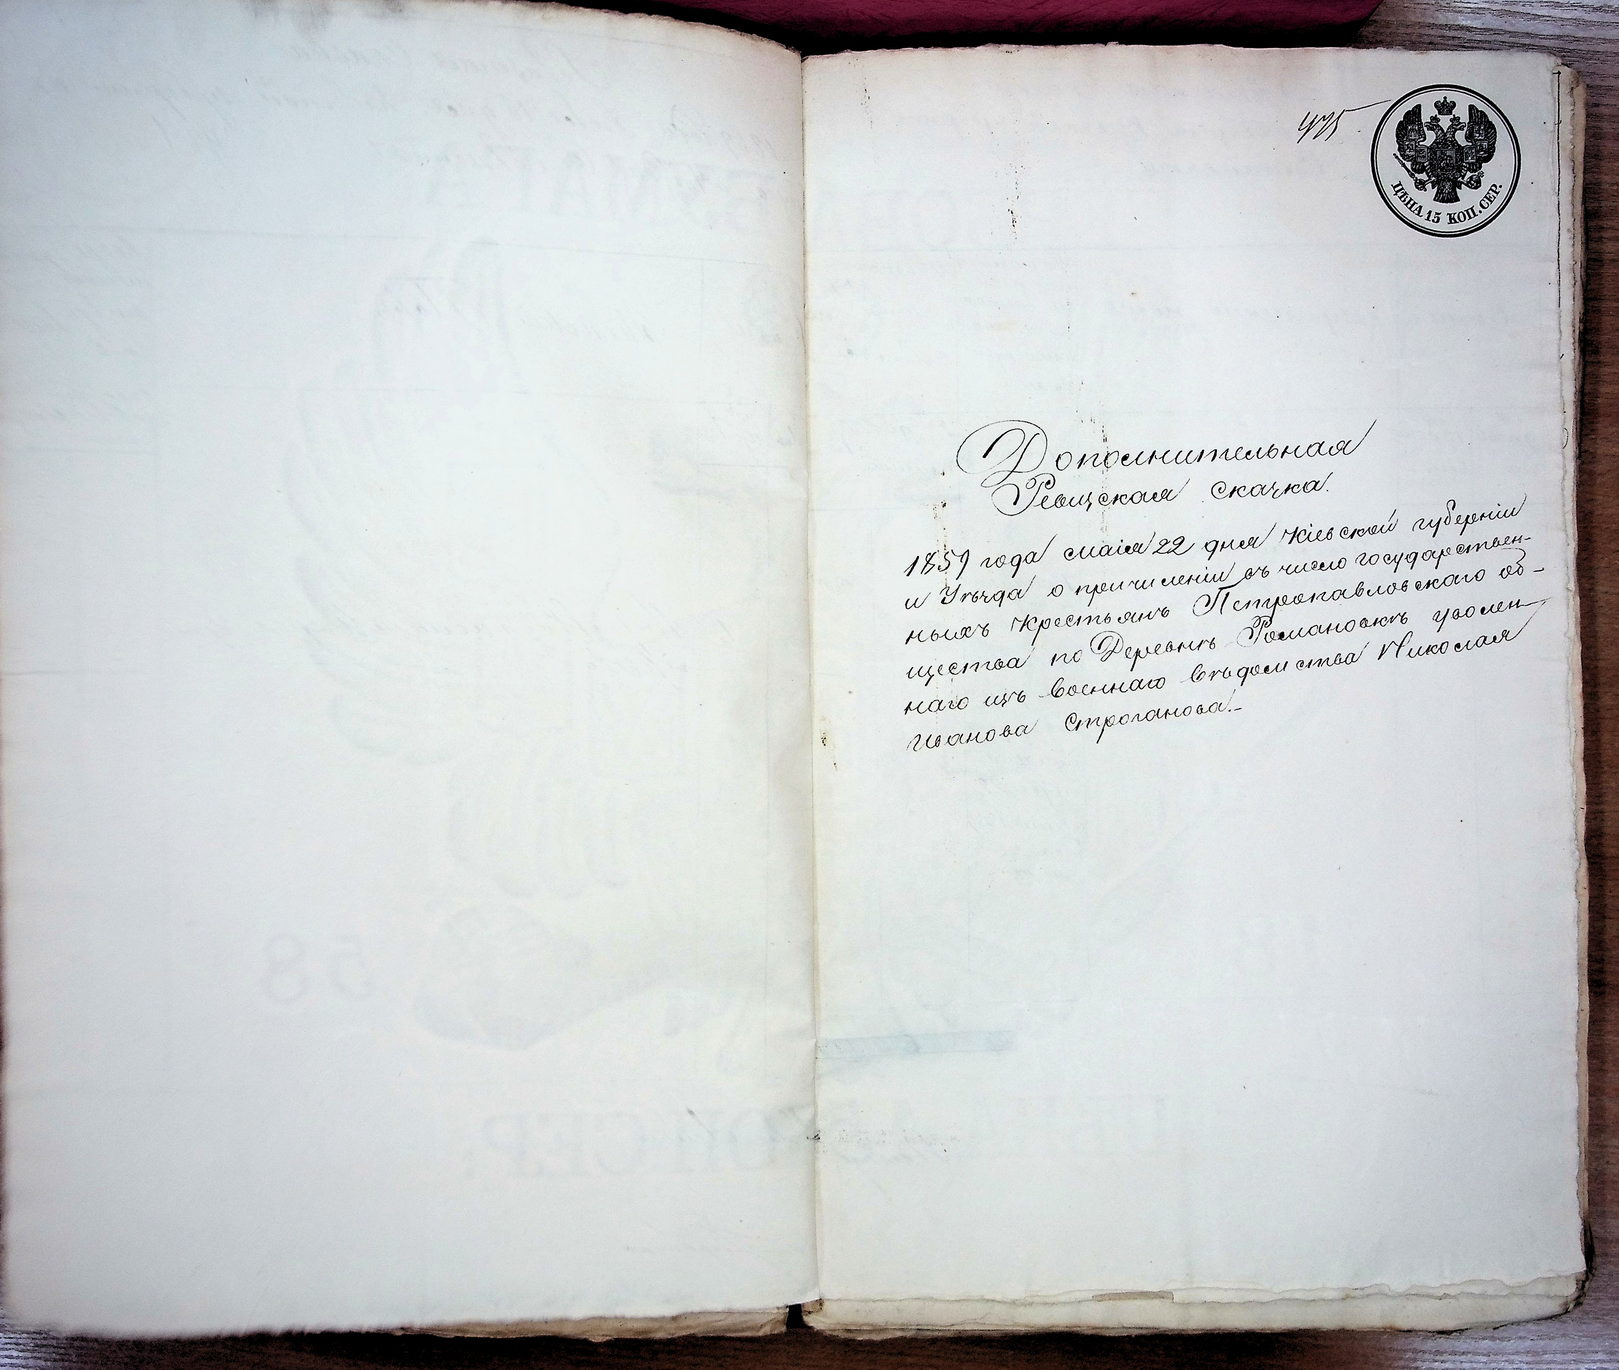 475
ЦѢНА 15 КОП. СЕР.
Дополнительная
Ревизская сказка.
1859 года маія 22 дня Кіевской губерніи
и Уѣзда о причисленіи въ число государствен-
ныхъ крестьянъ Петропавловскаго об-
щества по Деревнѣ Романовкѣ уволен-
наго изъ военнаго вѣдомства Николая
Иванова Строганова.-